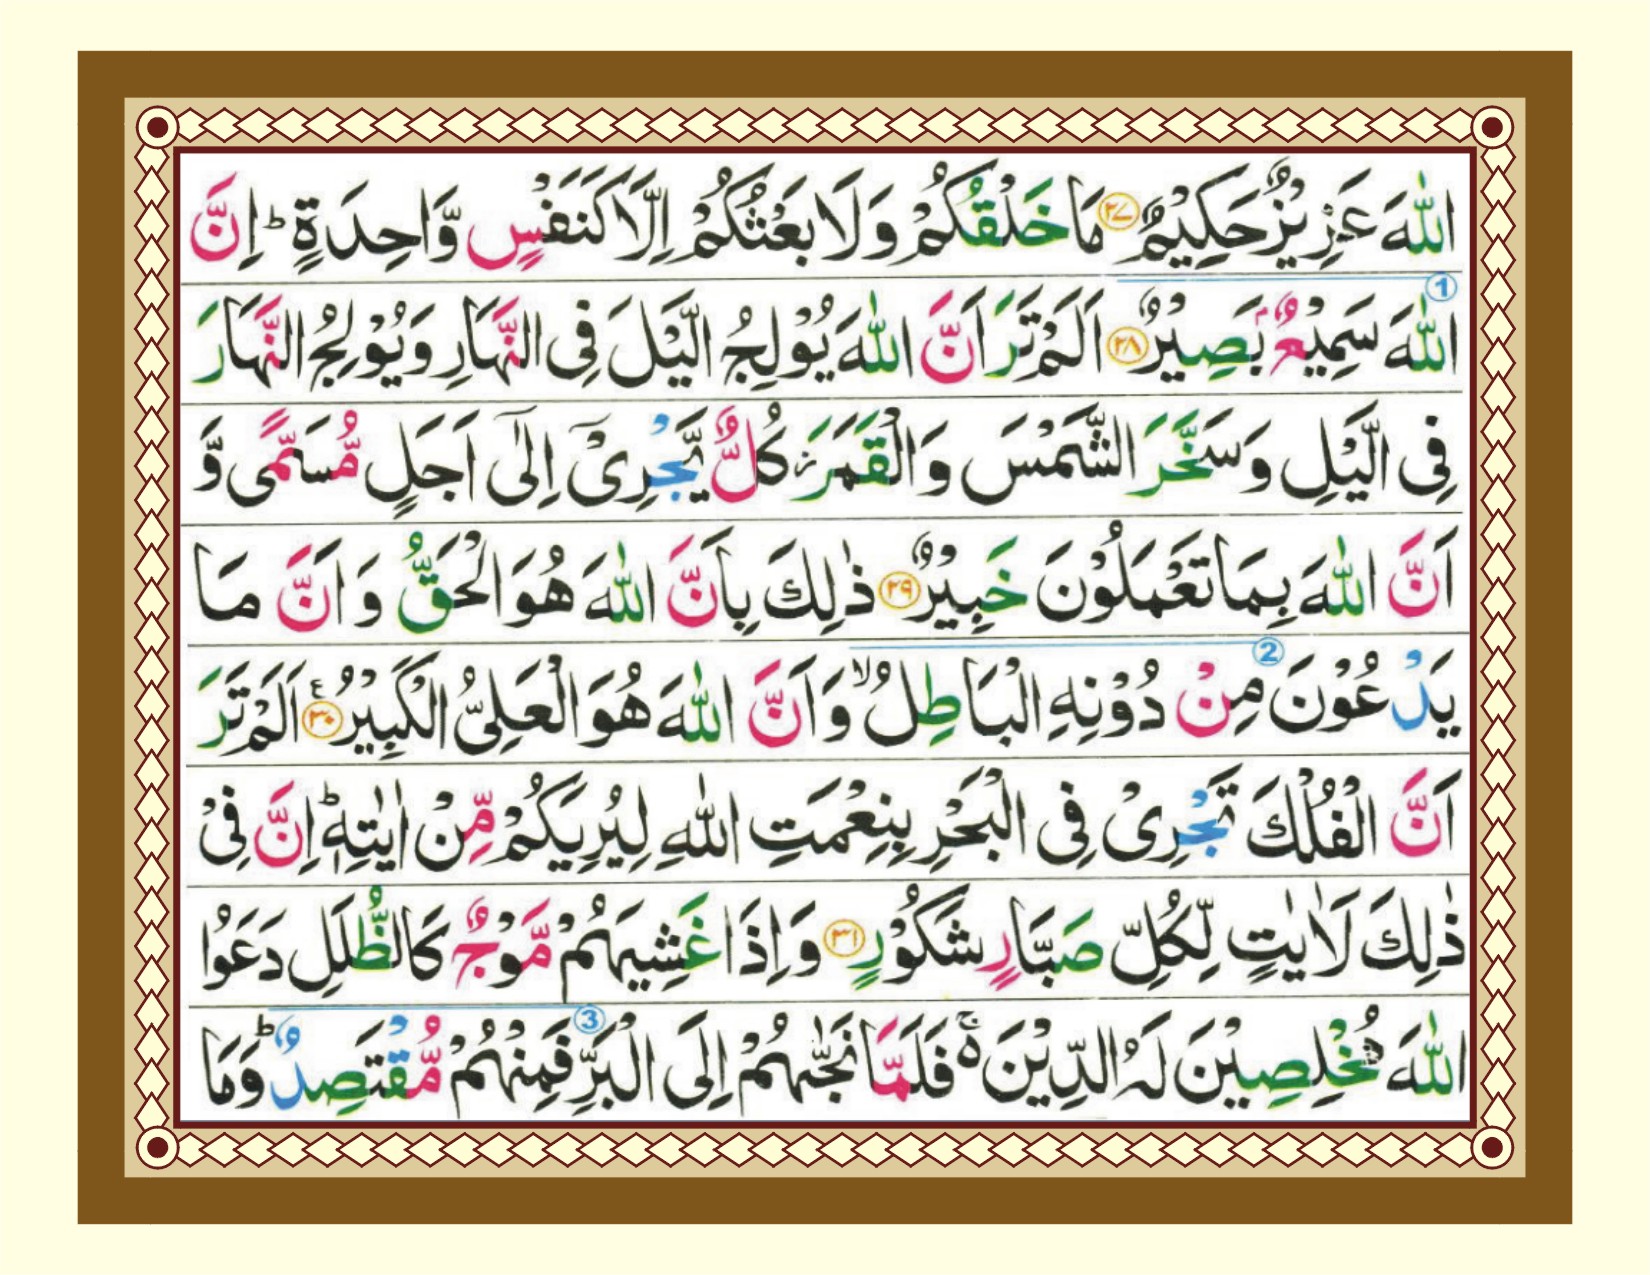 اللّٰهَ عَزِيْزٌ حَكِيْمٌ ۝۲۷ مَا خَلْقُكُمْ وَلَا بَعْثُكُمْ اِلَّا كَنَفْسٍ وَّاحِدَةٍ ؕ اِنَّ
①
اللّٰهَ سَمِيْعٌۢ بَصِيْرٌ ۝۲۸ اَلَمْ تَرَ اَنَّ اللّٰهَ يُوْلِجُ الَّيْلَ فِى النَّهَارِ وَيُوْلِجُ النَّهَارَ
فِى الَّيْلِ وَسَخَّرَ الشَّمْسَ وَالْقَمَرَ ز كُلٌّ يَّجْرِىْٓ اِلٰٓى اَجَلٍ مُّسَمًّى وَّ
اَنَّ اللّٰهَ بِمَا تَعْمَلُوْنَ خَبِيْرٌ ۝۲۹ ذٰلِكَ بِاَنَّ اللّٰهَ هُوَ الْحَقُّ وَاَنَّ مَا
②
يَدْعُوْنَ مِنْ دُوْنِهِ الْبَاطِلُ ۙ وَاَنَّ اللّٰهَ هُوَ الْعَلِىُّ الْكَبِيْرُ ۝۳۰ ع اَلَمْ تَرَ
اَنَّ الْفُلْكَ تَجْرِىْ فِى الْبَحْرِ بِنِعْمَتِ اللّٰهِ لِيُرِيَكُمْ مِّنْ اٰيٰتِهٖ ؕ اِنَّ فِىْ
ذٰلِكَ لَاٰيٰتٍ لِّكُلِّ صَبَّارٍ شَكُوْرٍ ۝۳۱ وَاِذَا غَشِيَهُمْ مَّوْجٌ كَالظُّلَلِ دَعَوُا
③
اللّٰهَ مُخْلِصِيْنَ لَهُ الدِّيْنَ ۚ۬ فَلَمَّا نَجّٰىهُمْ اِلَى الْبَرِّ فَمِنْهُمْ مُّقْتَصِدٌ ؕ وَمَا